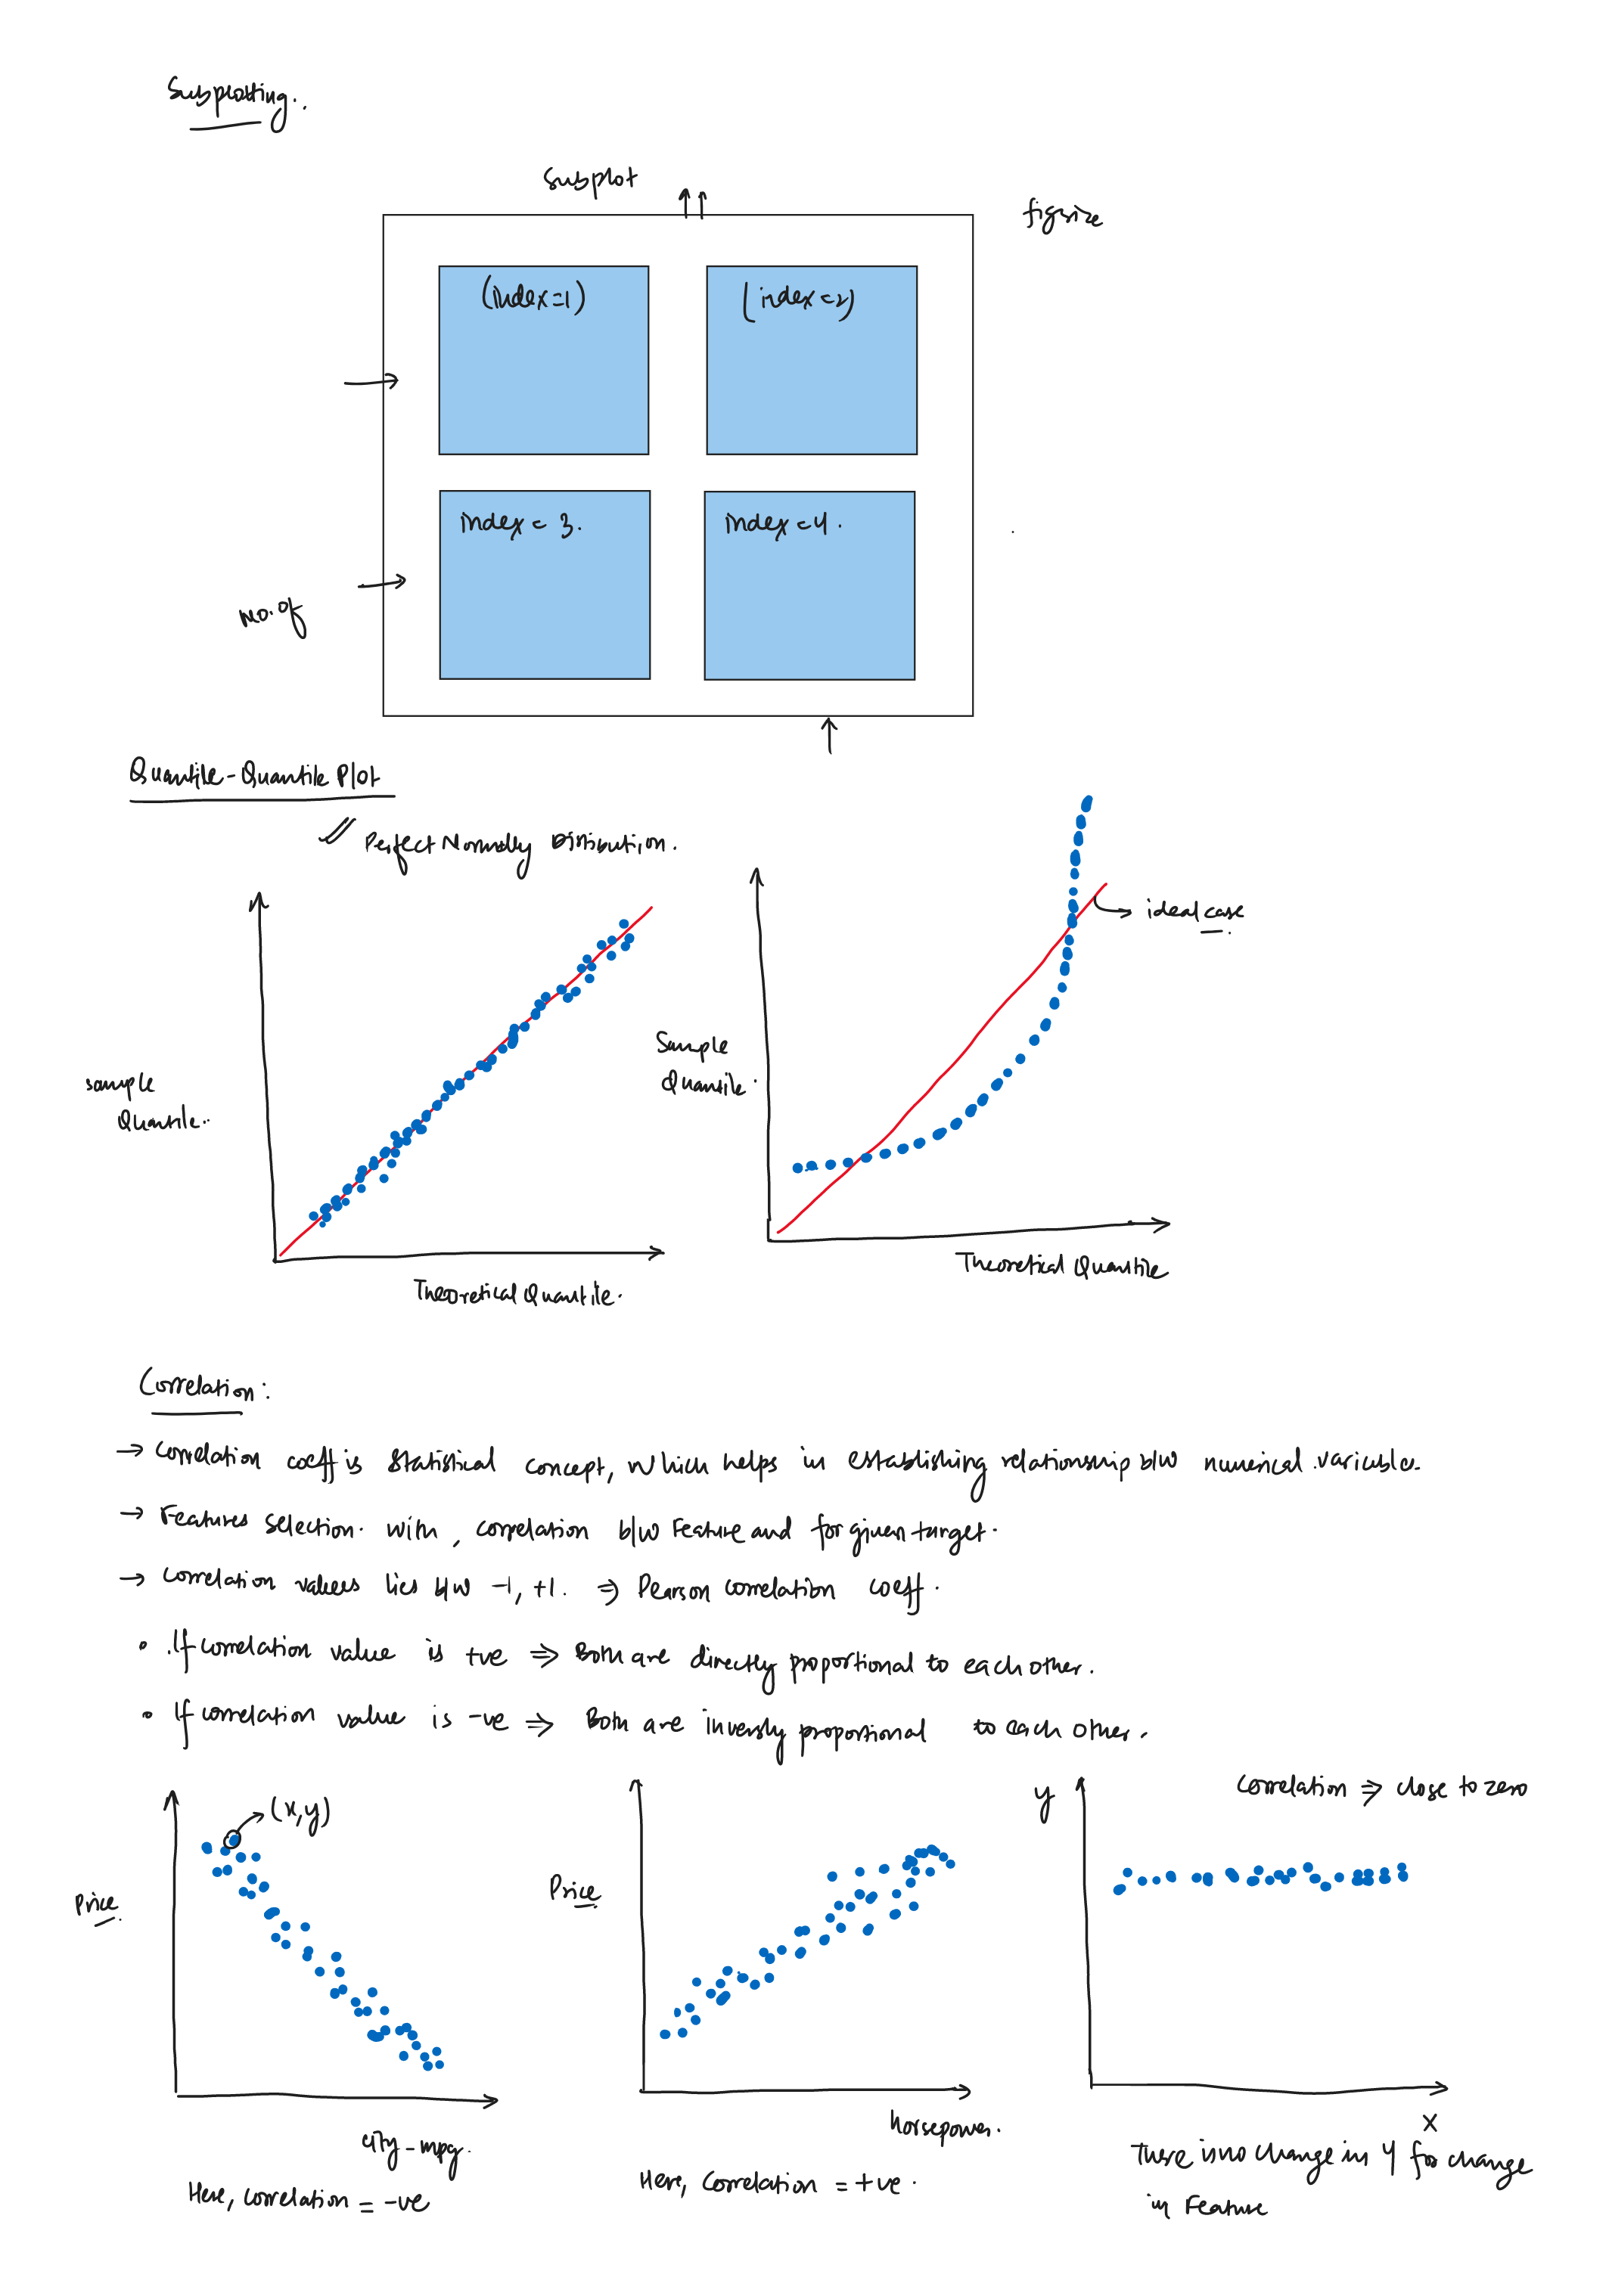 Subplotting.
Subplot
figsize
(index=1)
(index=2)
index=3.
index=4.
no. of
Quantile-Quantile Plot
Perfect Normally Distribution.
ideal case.
Sample
Quantile.
Sample
Quantile.
Theoretical Quantile.
Theoretical Quantile
Correlation:
→ Correlation coeff is statistical concept, which helps in establishing relationship b/w numerical variable.
→ Features selection with, correlation b/w Feature and for given target.
→ Correlation values lies b/w -1, +1. ⇒ Pearson correlation coeff.
• If correlation value is +ve ⇒ Both are directly proportional to each other.
• If correlation value is -ve ⇒ Both are inversly proportional to each other.
(x,y)
Price
city-mpg.
Here, correlation = -ve
Price
horsepower.
Here, correlation = +ve.
y
Correlation ⇒ close to zero
x
There is no change in y for change
in Feature